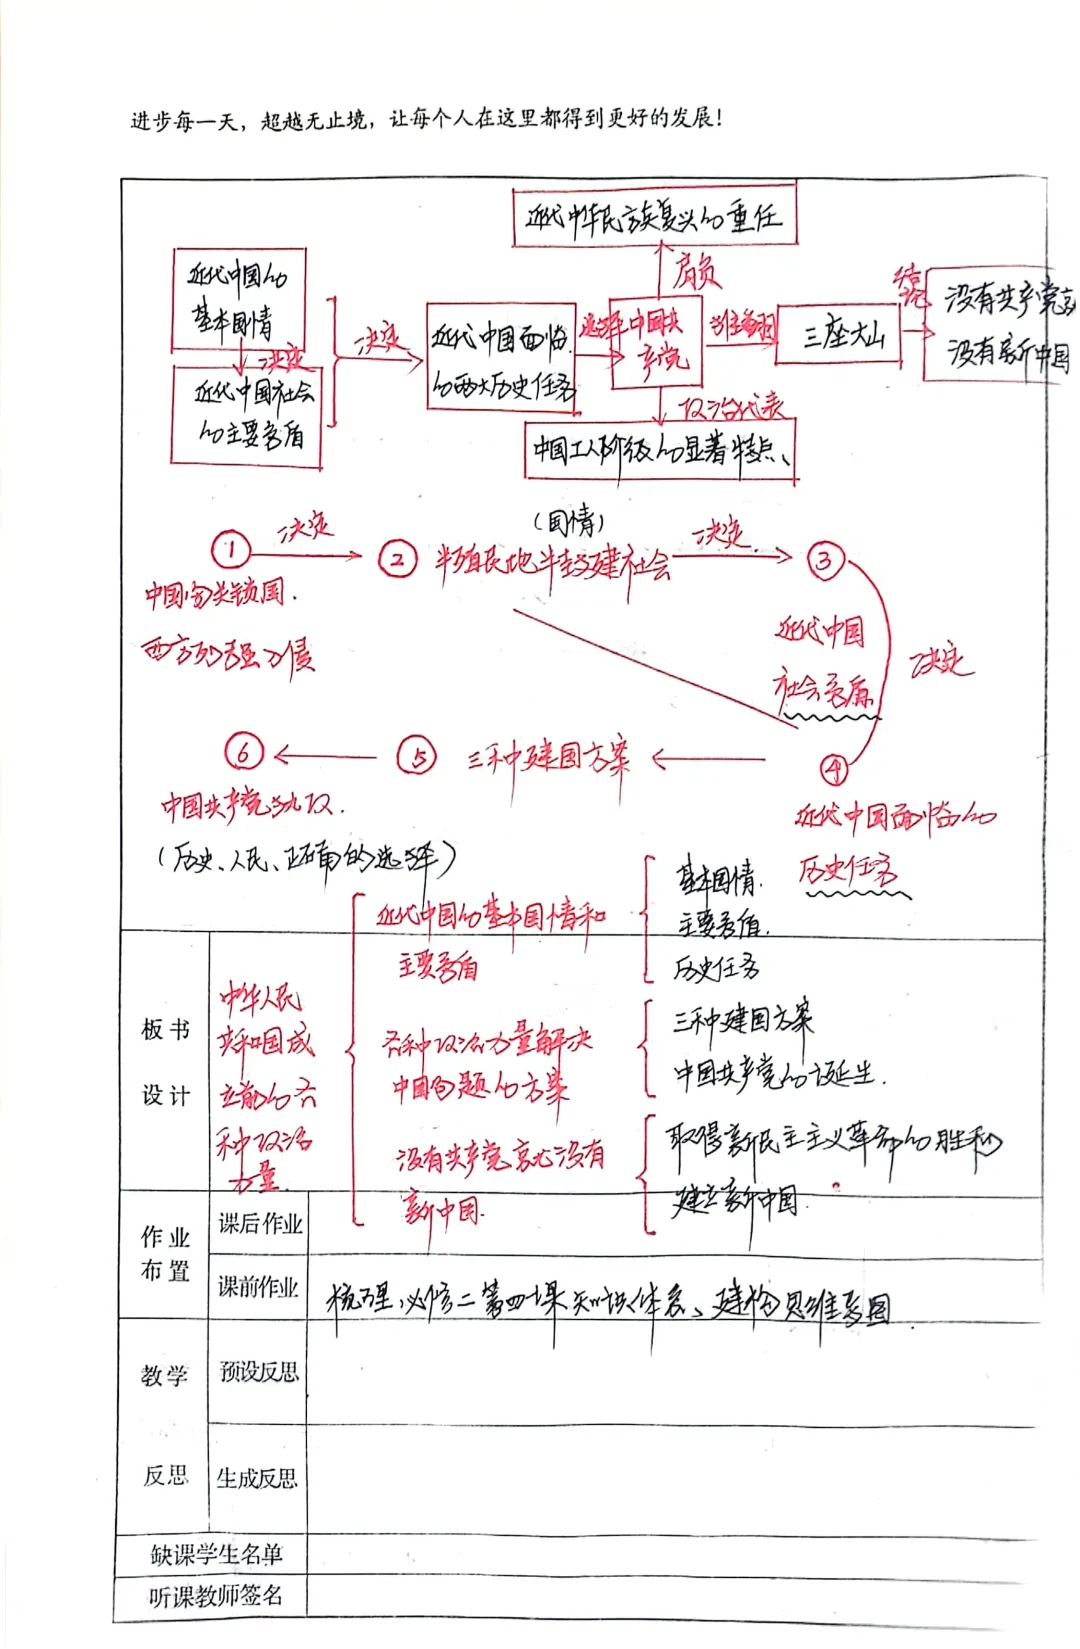 进步每一天，超越无止境，让每个人在这里都得到更好的发展！
近代中华民族复兴的重任
肩负
近代中国的
基本国情
决定
近代中国社会
的主要矛盾
决定
近代中国面临
的两大历史任务
选择
中国共
产党
推翻
三座大山
结论
没有共产党就
没有新中国
政治代表
中国工人阶级的显著特点、
① 决定 ② (国情) 半殖民地半封建社会 决定 ③
中国闭关锁国.
西方列强入侵
近代中国
社会矛盾
决定
⑥ ⑤ 三种建国方案 ④
中国共产党执政.
(历史、人民、正确的选择)
近代中国面临的
历史任务
板书
设计
中华人民
共和国成
立前的各
种政治
力量.
近代中国的基本国情和
主要矛盾
基本国情.
主要矛盾.
历史任务
各种政治力量解决
中国问题的方案
三种建国方案
中国共产党的诞生.
没有共产党就没有
新中国.
取得新民主主义革命的胜利
建立新中国.
作业
布置
课后作业
课前作业
梳理必修二第四课知识体系、建构思维导图
教学
反思
预设反思
生成反思
缺课学生名单
听课教师签名